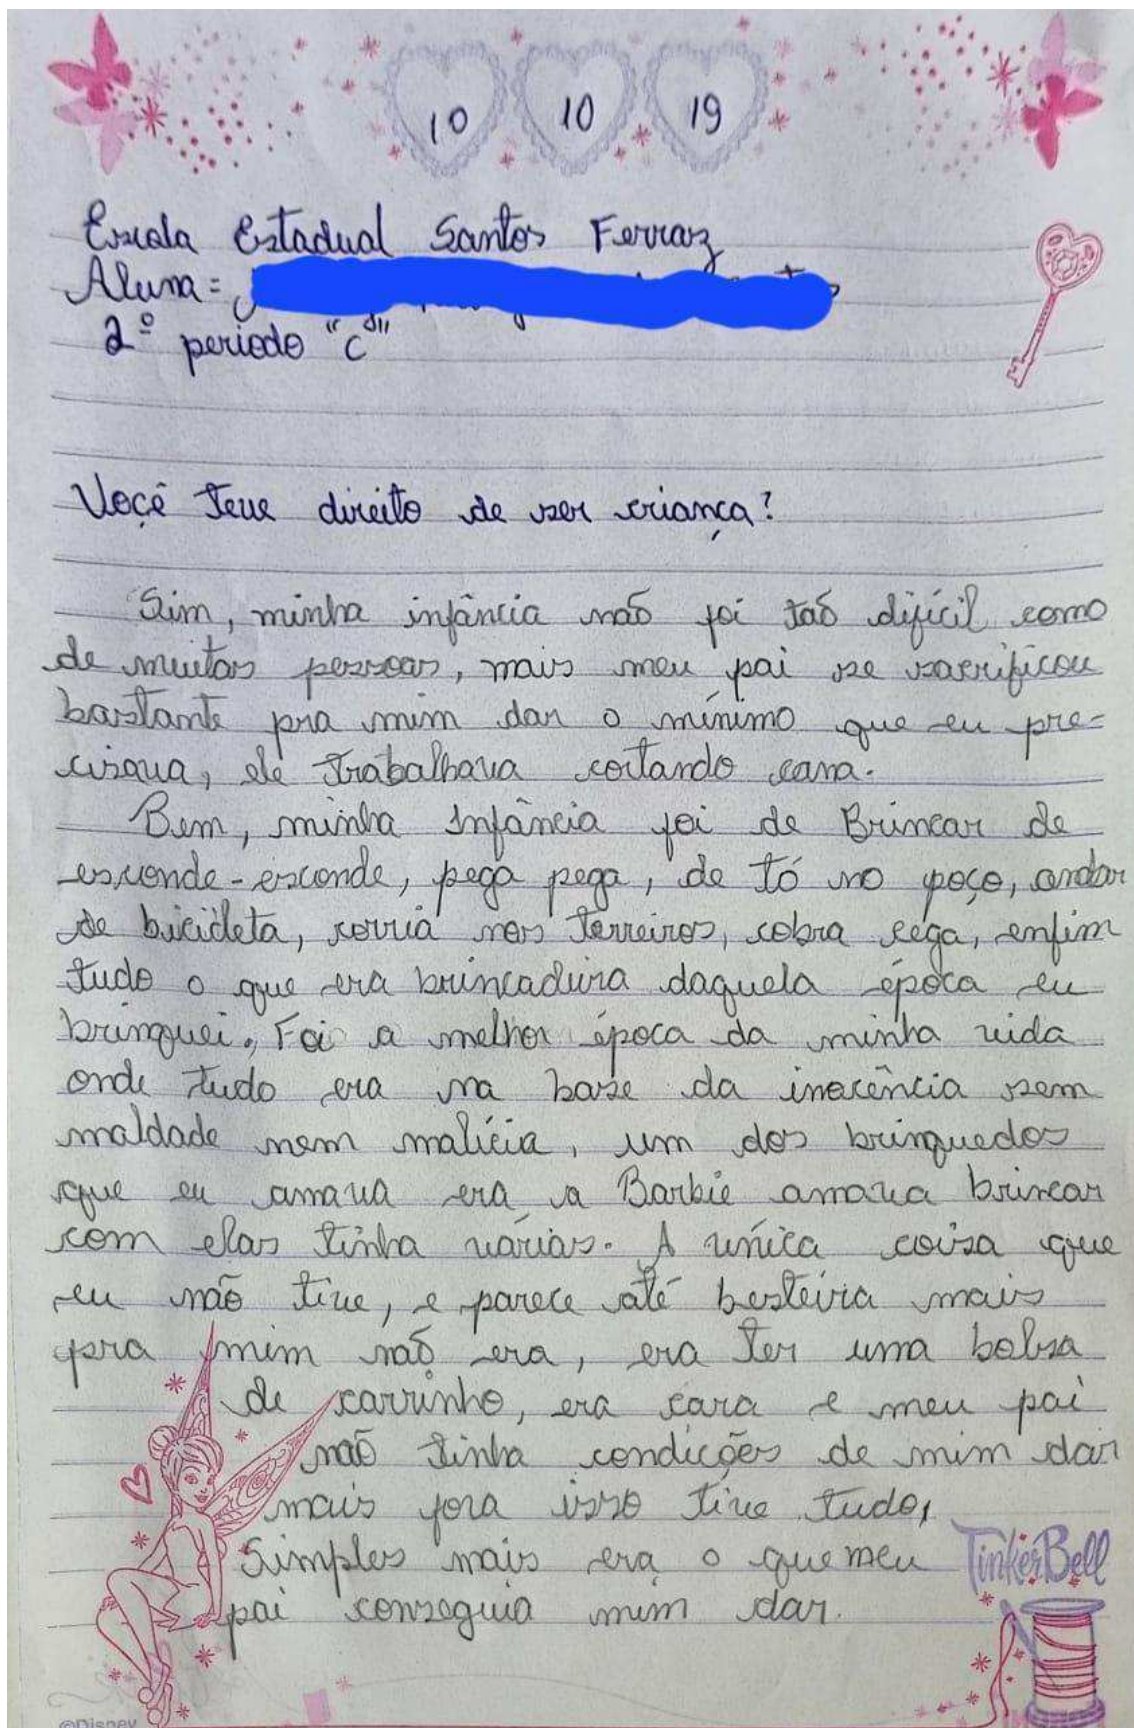 10 10 19
Escola Estadual Santos Ferraz
Aluna =
2º periodo "C"
Voçê teve direito de ser criança?
Sim, minha infância não foi tão difícil como
de muitas pessoas, mais meu pai se sacrificou
bastante pra mim dar o mínimo que eu pre-
cisava, ele trabalhava cortando cana.
Bem, minha Infância foi de Brincar de
esconde-esconde, pega pega, de tó no poço, andar
de bicicleta, corria nos terreiros, cobra cega, enfim
tudo o que era brincadeira daquela época eu
brinquei., Foi a melhor época da minha vida
onde tudo era na base da inocência sem
maldade nem malícia, um dos brinquedos
que eu amava era a Barbie amava brincar
com elas tinha várias. A única coisa que
eu não tive, e parece até besteira mais
pra mim não era, era ter uma bolsa
de carrinho, era cara e meu pai
não tinha condições de mim dar
mais fora isso tive tudo,
Simples mais era o que meu
pai conseguia mim dar.
TinkerBell
©Disney